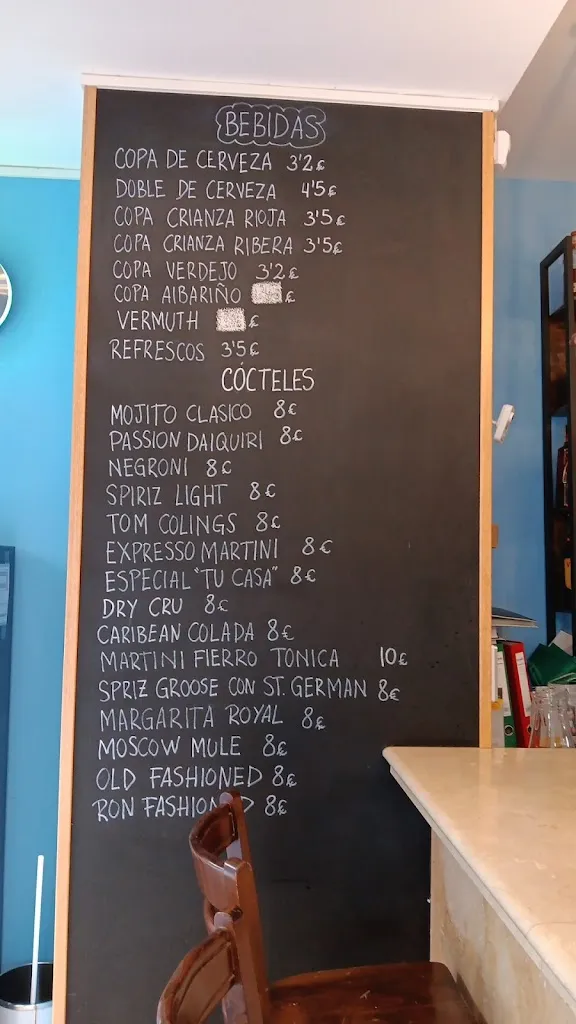 BEBIDAS
COPA DE CERVEZA 3'2€
DOBLE DE CERVEZA 4'5€
COPA CRIANZA RIOJA 3'5€
COPA CRIANZA RIBERA 3'5€
COPA VERDEJO 3'2€
COPA AlBARIÑO €
VERMUTH €
REFRESCOS 3'5€
CÓCTELES
MOJITO CLASICO 8€
PASSION DAIQUIRI 8€
NEGRONI 8€
SPIRIZ LIGHT 8€
TOM COLINGS 8€
EXPRESSO MARTINI 8€
ESPECIAL "TU CASA" 8€
DRY CRU 8€
CARIBEAN COLADA 8€
MARTINI FIERRO TONICA 10€
SPRIZ GROOSE CON ST. GERMAN 8€
MARGARITA ROYAL 8€
MOSCOW MULE 8€
OLD FASHIONED 8€
RON FASHIONED 8€